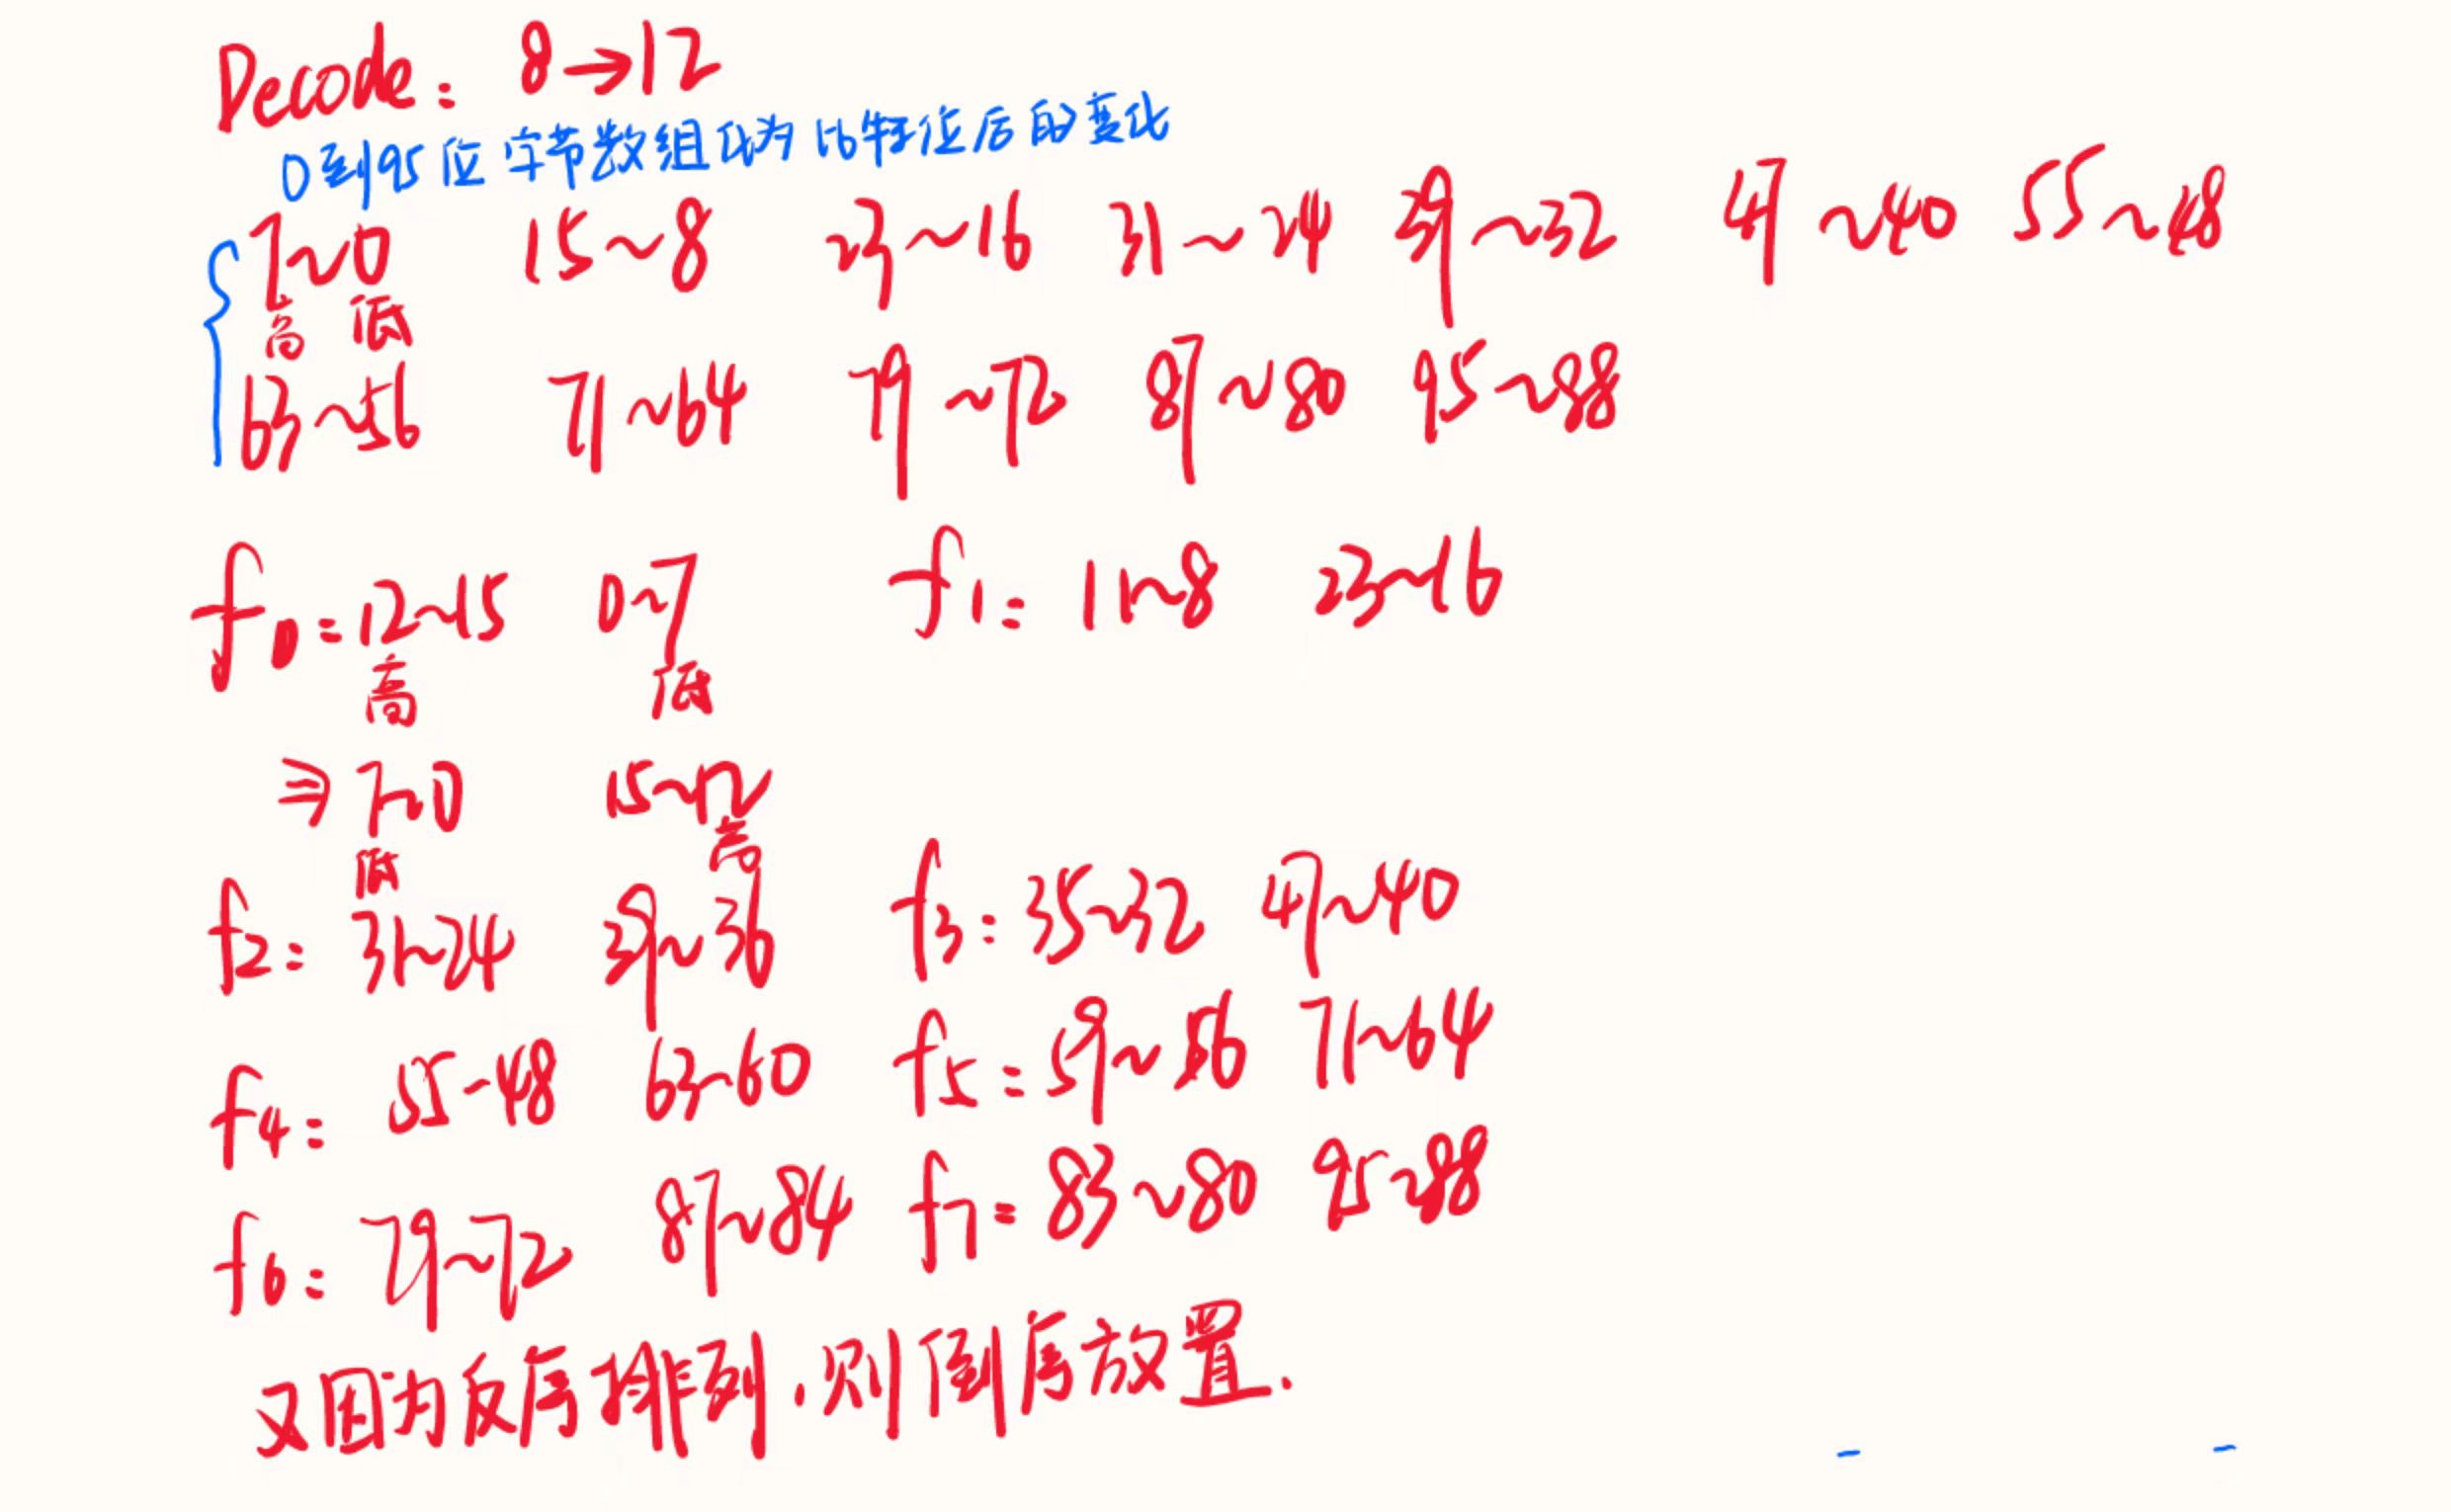 Decode: 8→12
0到95位字节数组化为16特位后的变化
7~0 15~8 23~16 31~24 39~32 47~40 55~48
高 低
63~56 71~64 79~72 87~80 95~88
f0=12~15 0~7 f1=11~8 23~16
高 低
⇒ 7~0 15~12
低 高
f2: 31~24 39~36 f3: 35~32 47~40
f4: 55~48 63~60 f5=59~56 71~64
f6: 79~72 87~84 f7=83~80 95~88
又因为反序排列.则倒序放置.